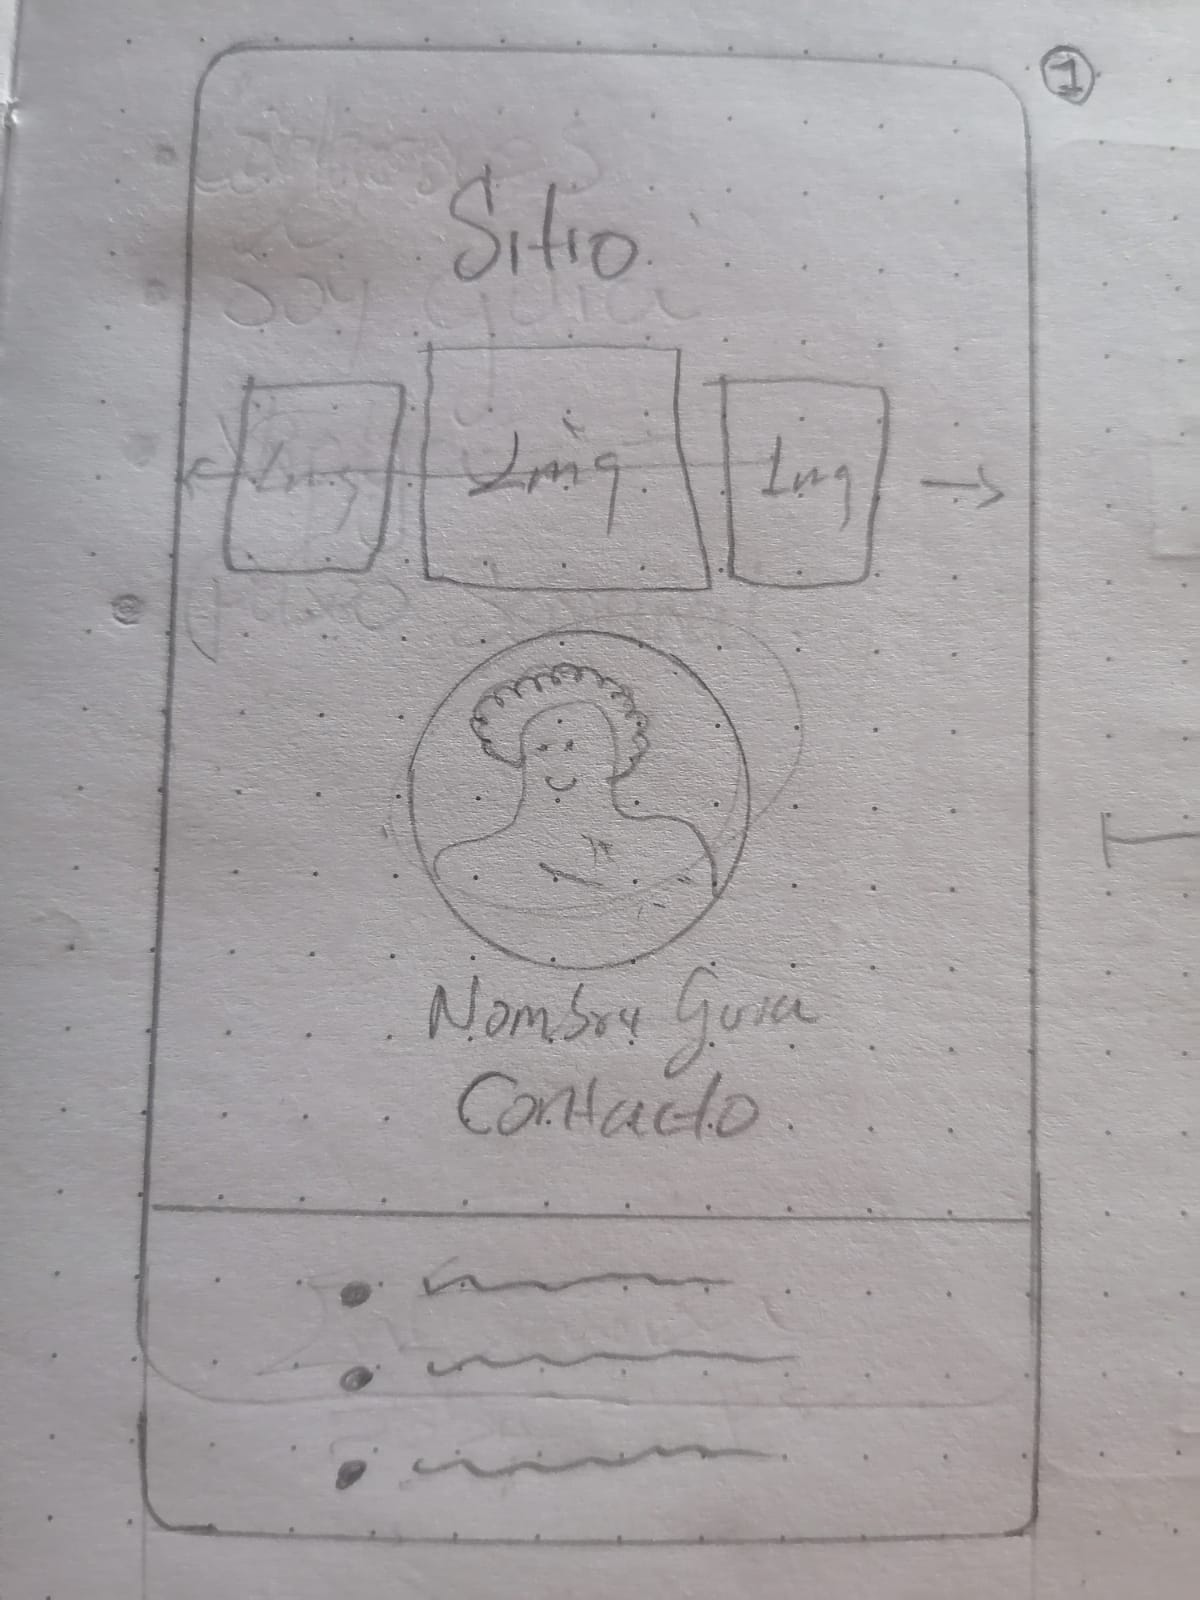 1
Sitio
Img Img Img
Nombre Guia
Contacto